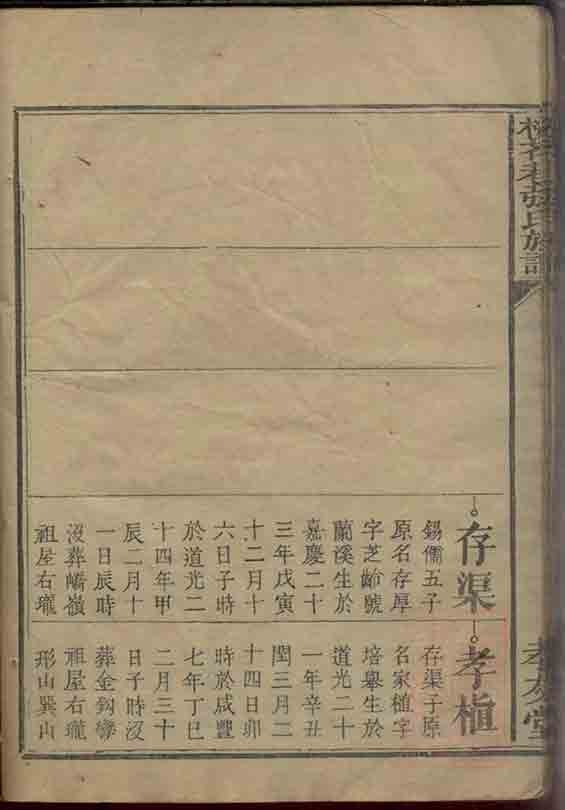 張氏族譜
存渠
錫儒五子
原名存厚
字芝齡號
蘭溪生於
嘉慶二十
三年戊寅
十二月十
六日子時
於道光二
十四年甲
辰二月十
一日辰時
沒葬嶠嶺
祖屋右瓏
孝植
存渠子原
名家植字
培舉生於
道光二十
一年辛丑
閏三月二
十四日卯
時於咸豐
七年丁巳
二月三十
日子時沒
葬金鈎彎
祖屋右瓏
形山巽山
孝友堂